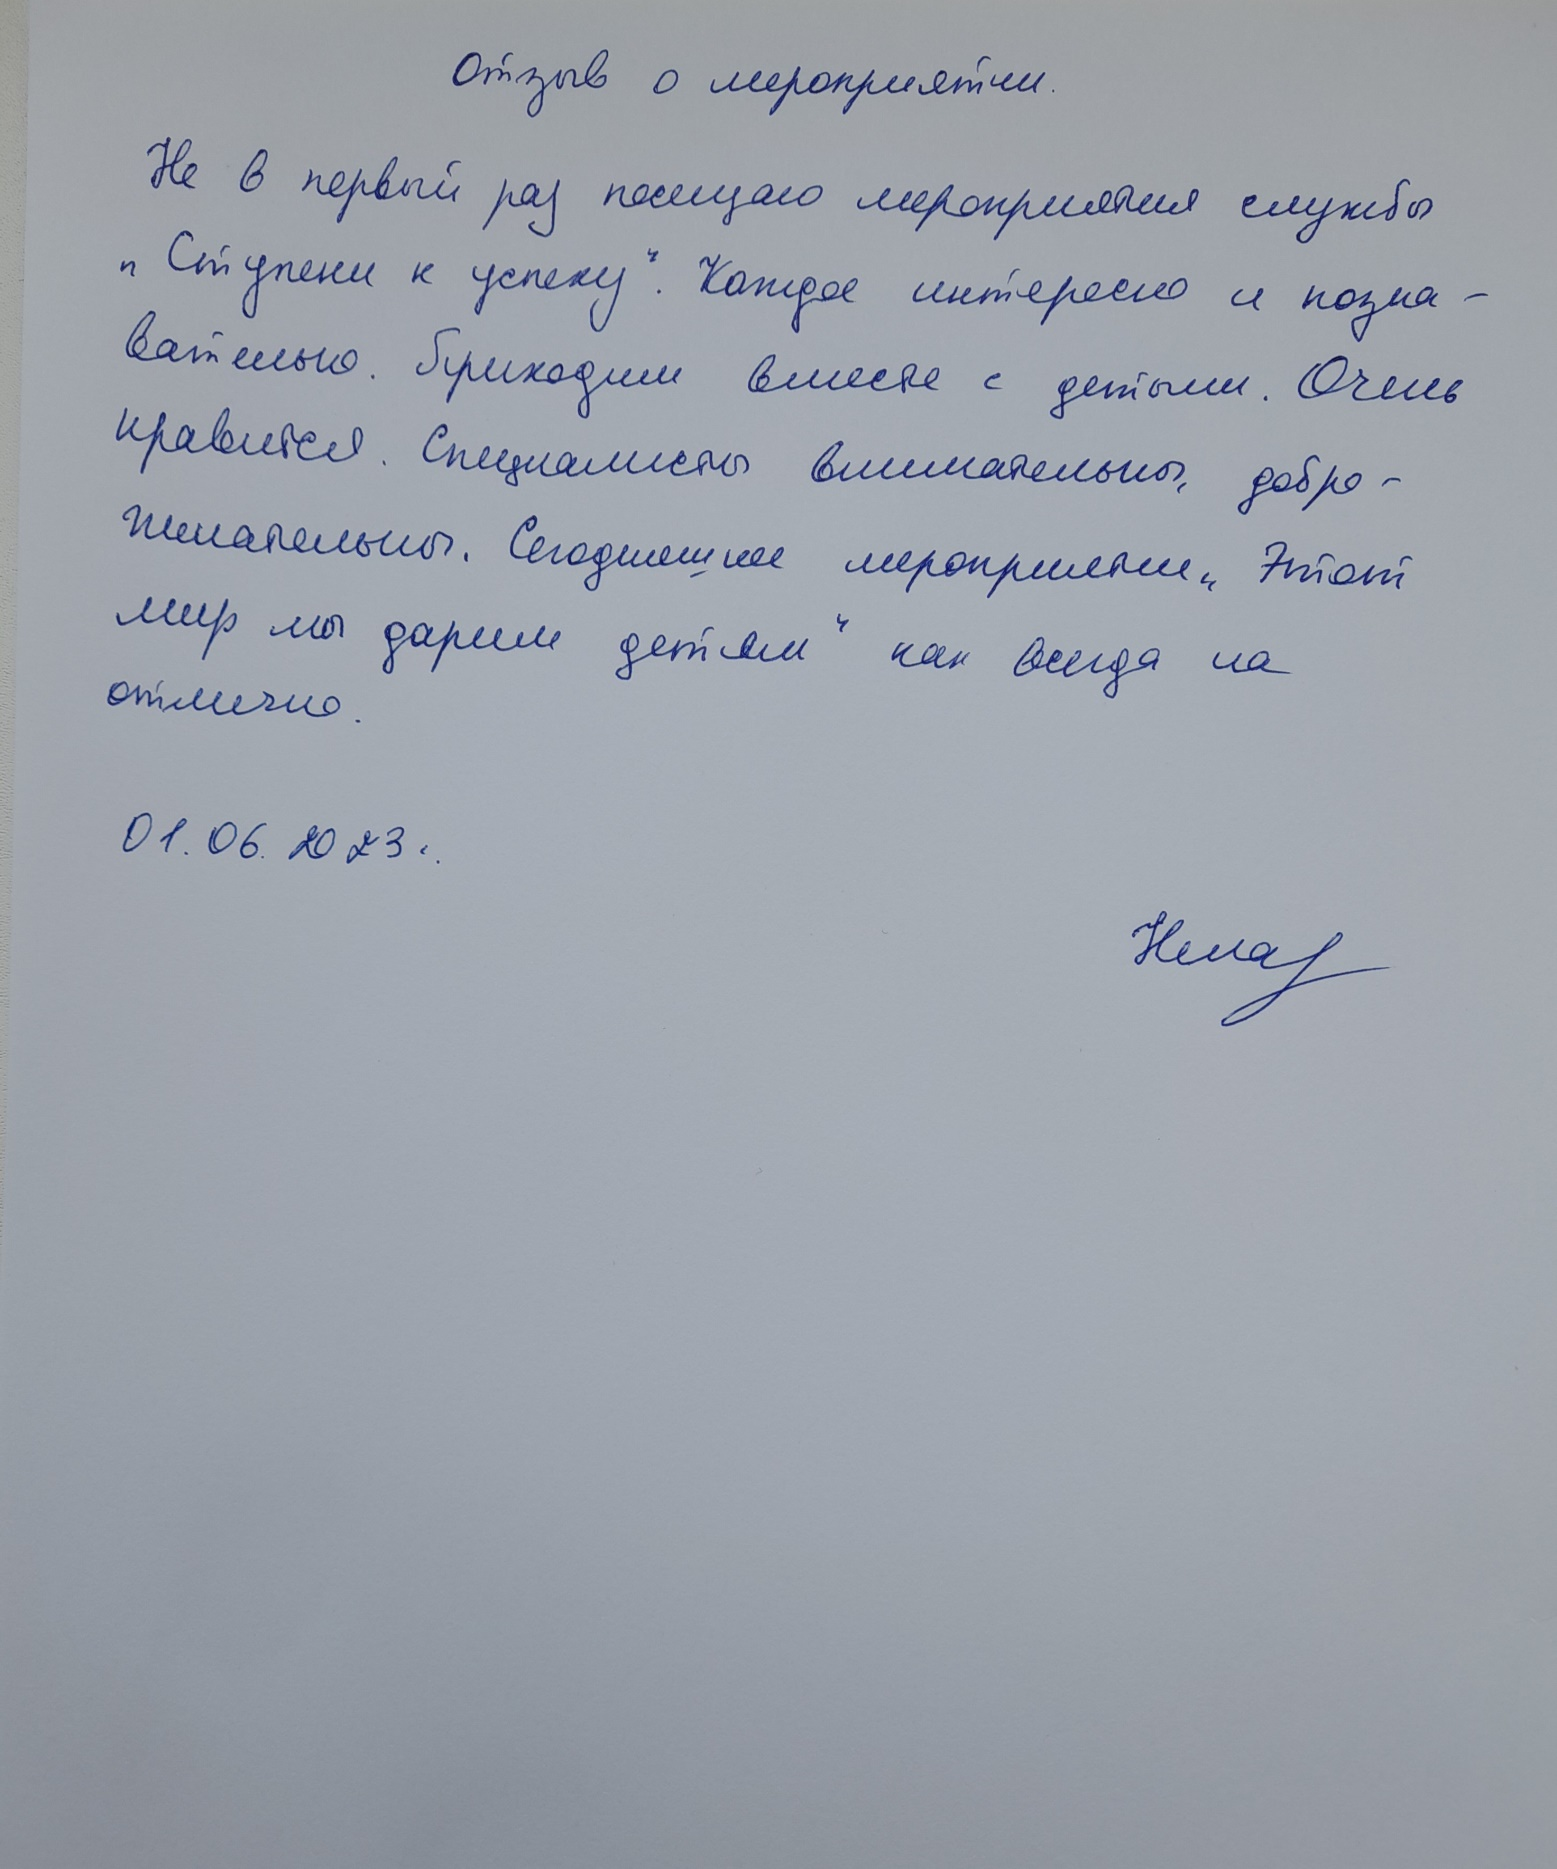 Отзыв о мероприятии.
Не в первый раз посещаю мероприятия службы
„Ступени к успеху“. Каждое интересно и позна-
вательно. Приходим вместе с детьми. Очень
нравится. Специалисты внимательны, добро-
желательны. Сегодняшнее мероприятие „Этот
мир мы дарим детям“ как всегда на
отлично.
01.06.2023г.